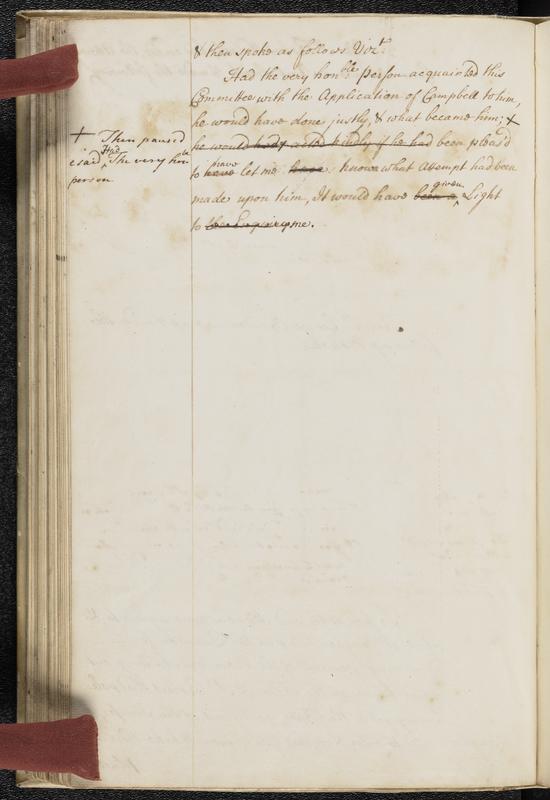 & then spoke as follows Vizt.
Had the very honble person acquainted this
Committee with the Application of Campbell to him,
he would have done justly, & what became him; +
+ Then paused
& said, Had The very honble
person
he would have acted kindly if he had been pleas'd
to have let me know what Attempt had been
made upon him, It would have been a given Light
to the Enquiry me.